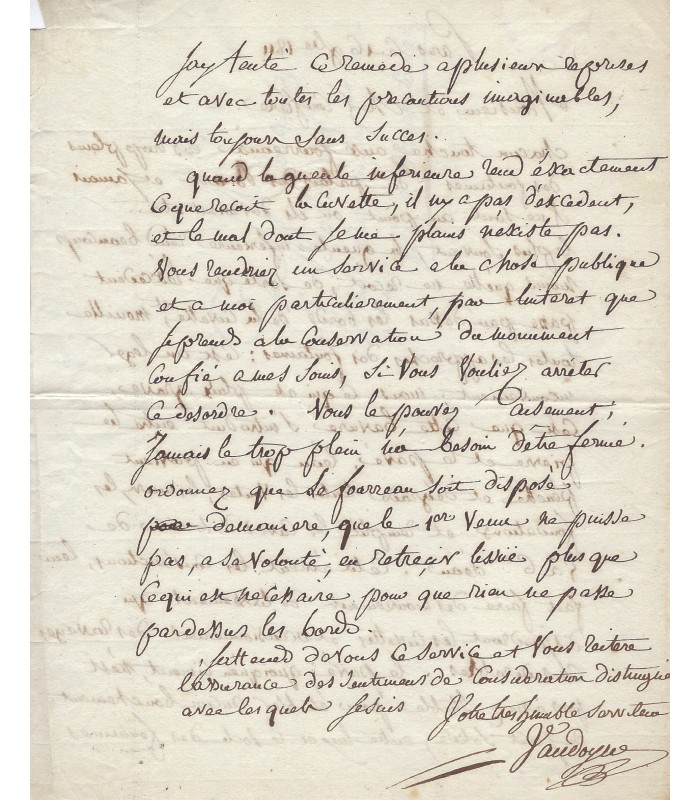 J'ay tenté ce remede a plusieurs reprises
et avec toutes les precautions imaginables,
mais toujours sans succes.
quand la gueule inferieure rend éxactement
ce que recoit la cuvette, il ny a pas d'éxcedent,
et le mal dont je me plains n'éxiste pas.
Vous rendriez un service a la chose publique
et a moi particulierement, par linteret que
je prends a la conservation du monument
confié a mes soins, si Vous Vouliez arrêter
ce desordre. Vous le pouvez aisement;
Jamais le trop plein n'a besoin d'être fermé.
ordonnez que le fourreau soit disposé
de maniere, que le 1er venu ne puisse
pas, a sa Volonté, en retreçir lissüe plus que
ce qui est necessaire pour que rien ne passe
par dessus les bords
J'attends de Vous ce service et Vous reitere
l'assurance des sentimens de Consideration distinguée
avec lesquels je suis Votre tres humble Serviteur
Vaudoyer